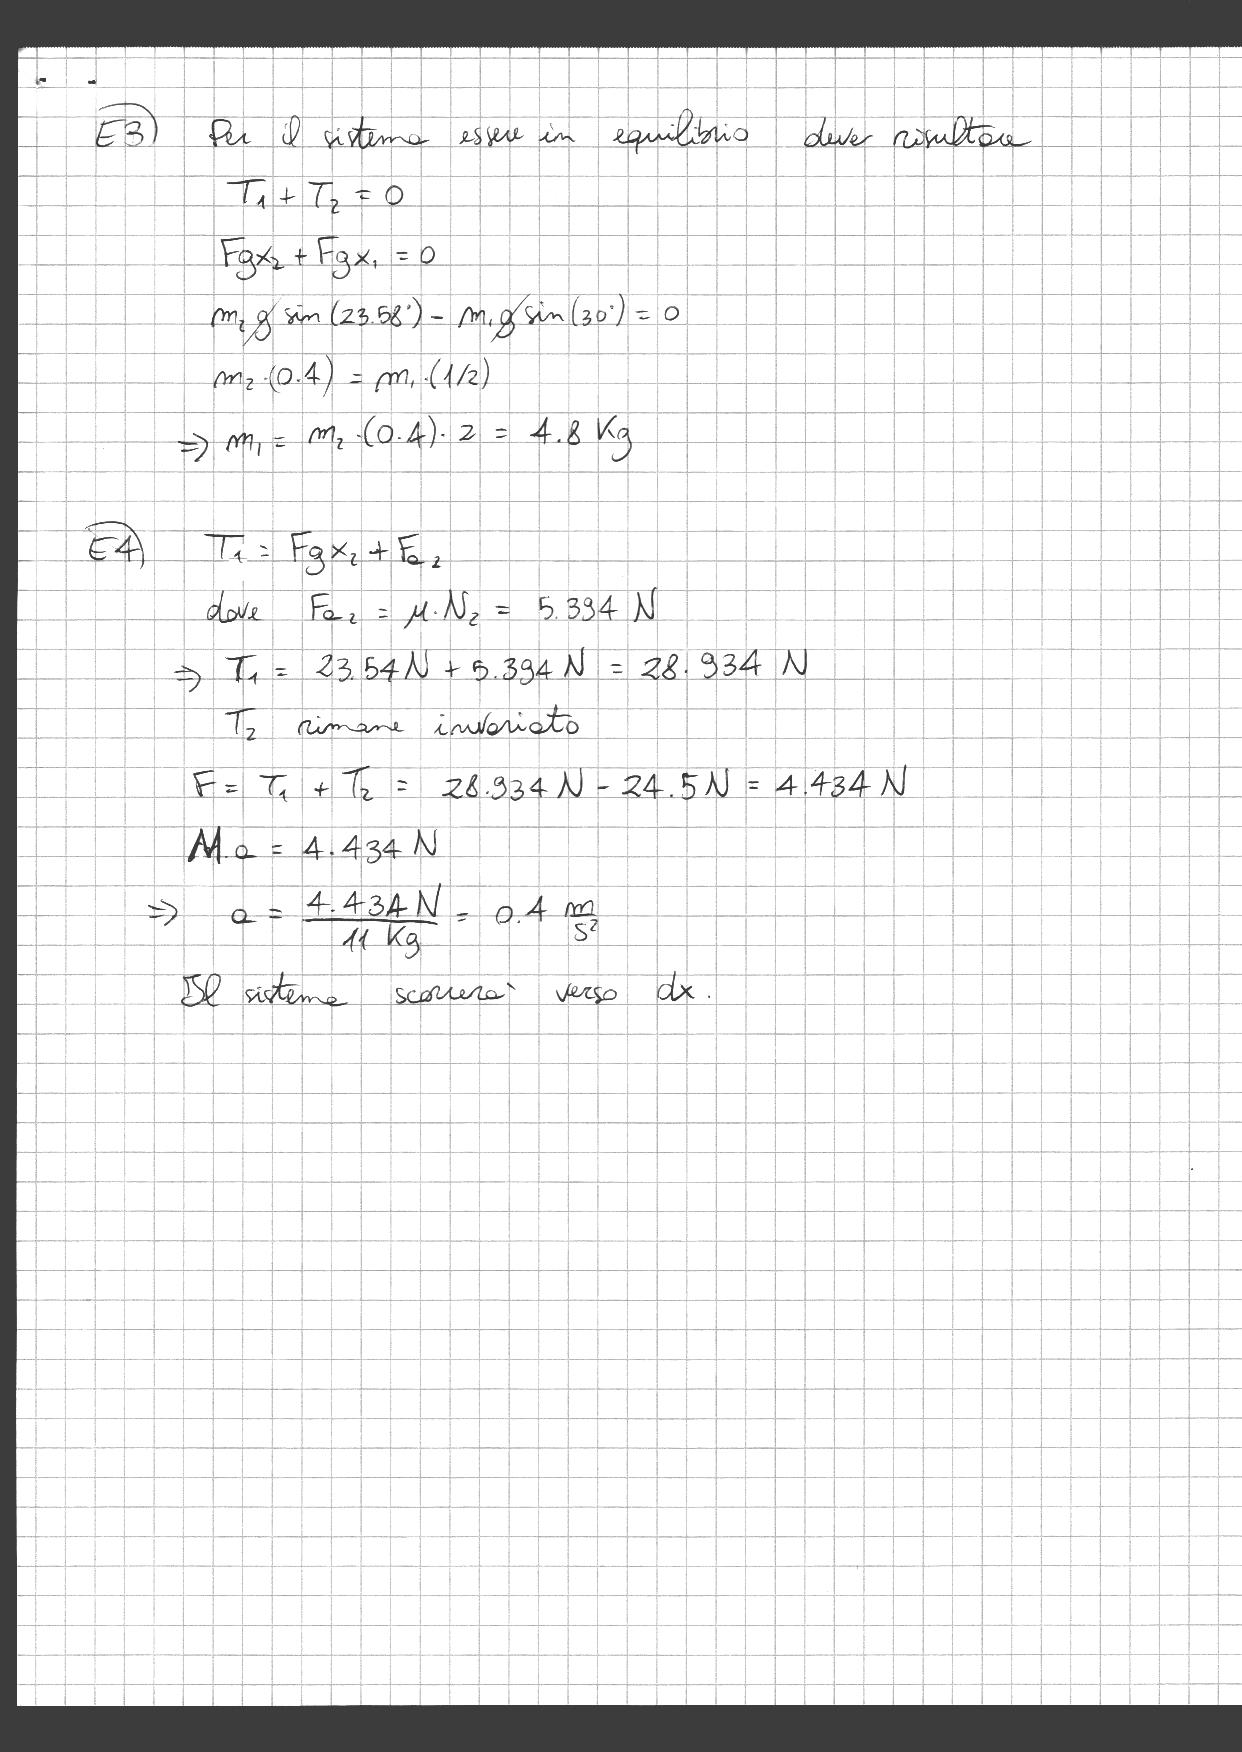 E3) Per il sistema essere in equilibrio dever risultare
T₁ + T₂ = 0
Fgx₂ + Fgx₁ = 0
m₂ g sin (23.58°) - m₁ g sin (30°) = 0
m₂ · (0.4) = m₁ · (1/2)
⇒ m₁ = m₂ · (0.4) · 2 = 4.8 Kg
E4) T₁ = Fgx₂ + Fa₂
dove Fa₂ = μ · N₂ = 5.394 N
⇒ T₁ = 23.54 N + 5.394 N = 28.934 N
T₂ rimane invariato
F = T₁ + T₂ = 28.934 N - 24.5 N = 4.434 N
M · a = 4.434 N
⇒ a = 4.434 N / 11 Kg = 0.4 m/s²
Il sistema scorrerà verso dx.